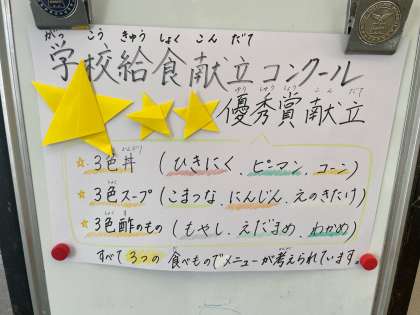 がっこうきゅうしょくこんだて
学校給食献立コンクール
ゆうしゅうしょうこんだて
優秀賞献立
どんぶり
☆3色丼（ひきにく、ピーマン、コーン）
☆3色スープ（こまつな、にんじん、えのきたけ）
☆3色酢のもの（もやし、えだまめ、わかめ）
すべて3つの食べものでメニューが考えられています。